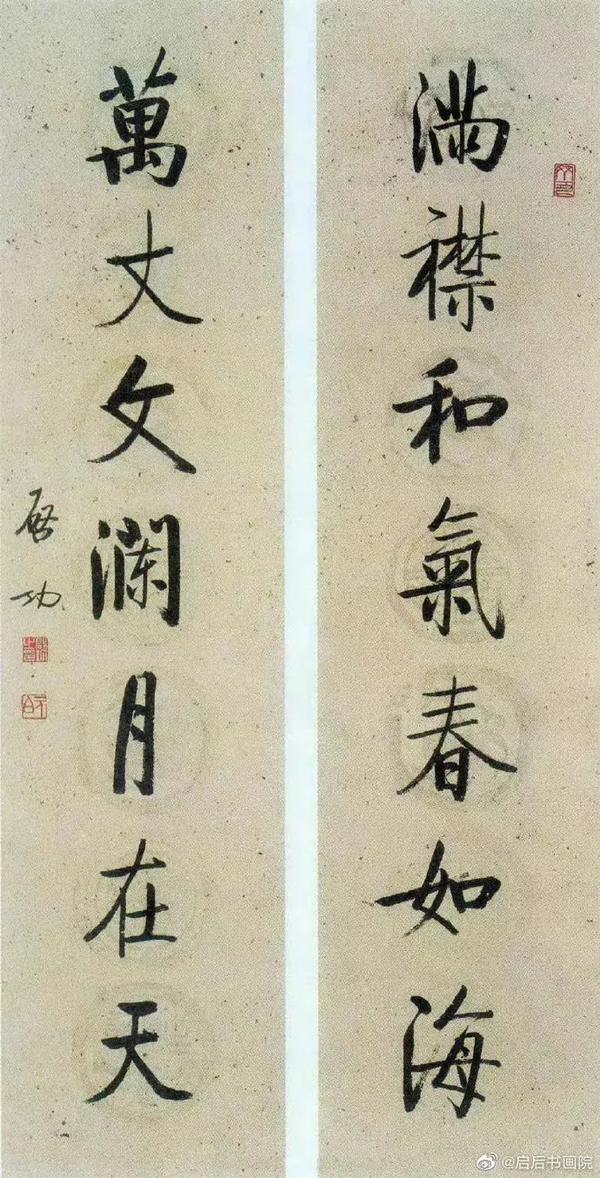 満襟和氣春如海
萬丈文澜月在天
启功
@启后书画院